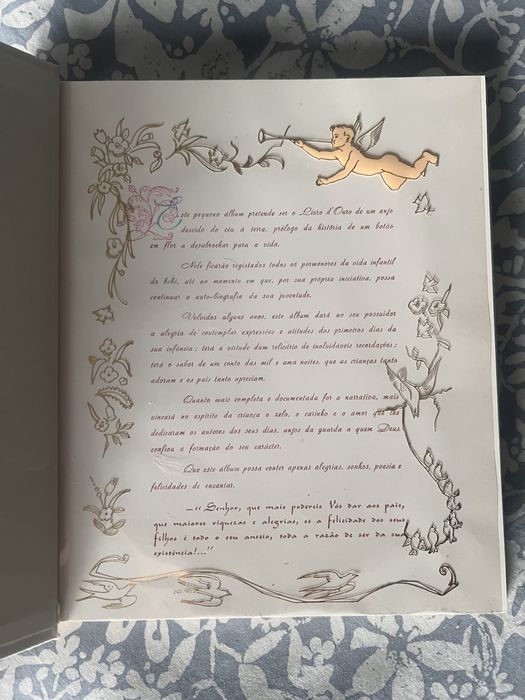 Este pequeno álbum pretende ser o Livro d'Ouro de um anjo
descido do céu à terra, prólogo da história de um botão
em flor a desabrochar para a vida.
Nele ficarão registados todos os pormenores da vida infantil
do bebé, até ao momento em que, por sua própria iniciativa, possa
continuar a auto-biografia da sua juventude.
Volvidos alguns anos, este álbum dará ao seu possuidor
a alegria de contemplar expressões e atitudes dos primeiros dias da
sua infância; terá a virtude dum relicário de inolvidáveis recordações;
terá o sabor de um conto das mil e uma noites, que as crianças tanto
adoram e os pais tanto apreciam.
Quanto mais completa e documentada for a narrativa, mais
vincará no espírito da criança o zelo, o carinho e o amor que lhe
dedicaram os autores dos seus dias, anjos da guarda a quem Deus
confiou a formação do seu carácter.
Que este álbum possa conter apenas alegrias, sonhos, poesia e
felicidades de encantar.
—«Senhor, que mais podereis Vós dar aos pais,
que maiores riquezas e alegrias, se a felicidade dos seus
filhos é todo o seu anseio, toda a razão de ser da sua
existência!...»